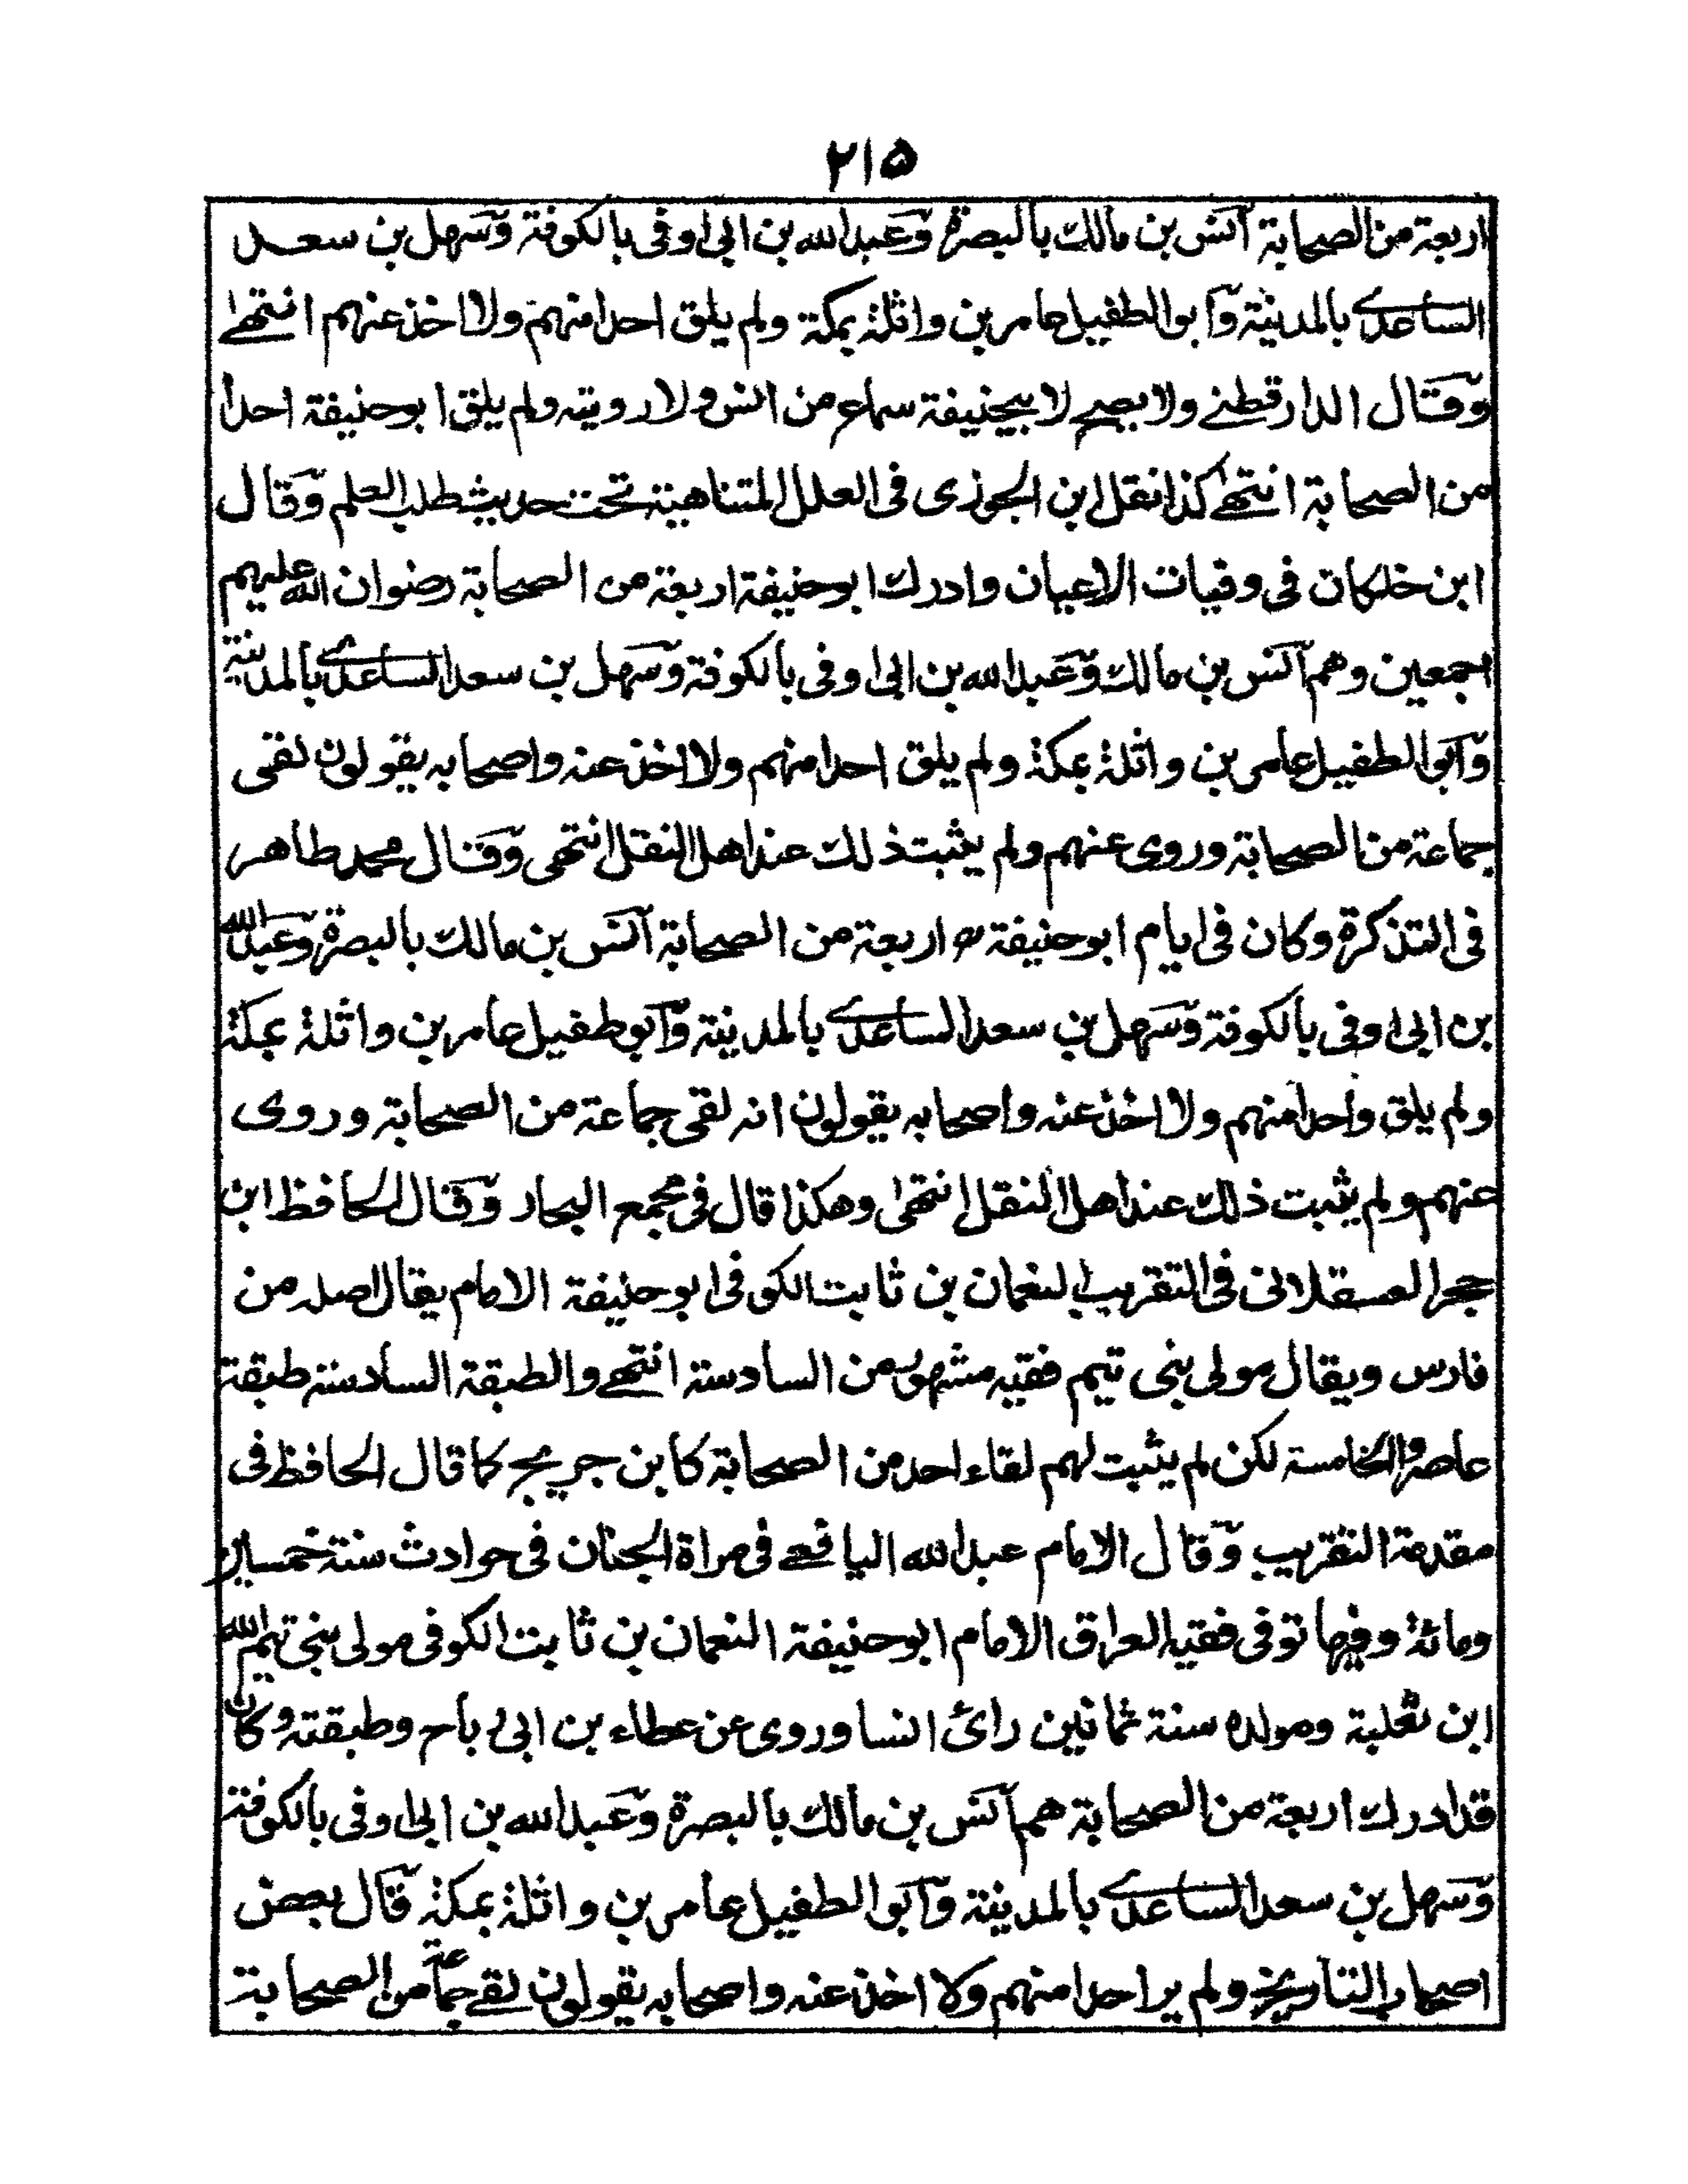 ٢١٥
اربعة من الصحابة آنس بن مالك بالبصرة وعبد الله بن ابى اوفى بالكوفة وسهل بن سعد
الساعدے بالمدينة وآبو الطفيل عامر بن واثلة بمكة ولم يلق احدا منهم ولا اخذ عنهم انتهےٰ
وقال الدارقطنے ولا يصح لابيحنيفة سماع من انس ولا رويته ولم يلق ابو حنيفة احدا
من الصحابة انتهےٰ كذا نقل ابن الجوزى فى العلل المتناهية تحت حديث طلب العلم وقال
ابن خلكان فى وفيات الاعيان وادرك ابو حنيفة اربعة من الصحابة رضوان الله عليهم
اجمعين وهم آنس بن مالك وعبد الله بن ابى اوفى بالكوفة وسهل بن سعد الساعدے بالمدينة
وآبو الطفيل عامر بن واثلة بمكة ولم يلق احدا منهم ولا اخذ عنه واصحابه يقولون لقى
جماعة من الصحابة وروى عنهم ولم يثبت ذلك عند اهل النقل انتهى وقال محمد طاهر
فى التذكرة وكان فى ايام ابو حنيفة رح اربعة من الصحابة آنس بن مالك بالبصرة وعبد الله
بن ابى اوفى بالكوفة وسهل بن سعد الساعدے بالمدينة وآبو طفيل عامر بن واثلة بمكة
ولم يلق واحدا منهم ولا اخذ عنه واصحابه يقولون انه لقى جماعة من الصحابة وروى
عنهم ولم يثبت ذلك عند اهل النقل انتهىٰ وهكذا قال فى مجمع البحار وقال الحافظ ابن
حجر العسقلانى فى التقريب النعمان بن ثابت الكوفى ابو حنيفة الامام يقال اصله من
فارس ويقال مولى بنى تيم فقيه مشهور من السادسة انتهے والطبقة السادسة طبقة
عاصروا الخامسة لكن لم يثبت لهم لقاء احد من الصحابة كابن جريج كما قال الحافظ فى
مقدمة التقريب وقال الامام عبد الله اليافعے فى مراة الجنان فى حوادث سنة خمسين
ومائة وفيها توفى فقيه العراق الامام ابو حنيفة النعمان بن ثابت الكوفى مولى بنى تيم الله
ابن ثعلبة ومولده سنة ثمانين رائ انسا وروى عن عطاء بن ابى رباح وطبقته وكان
قد ادرك اربعة من الصحابة هم آنس بن مالك بالبصرة وعبد الله بن ابى اوفى بالكوفة
وسهل بن سعد الساعدے بالمدينة وآبو الطفيل عامر بن واثلة بمكة قال بعض
اصحاب التاريخ ولم ير احدا منهم ولا اخذ عنه واصحابه يقولون لقے جماعة من الصحابة